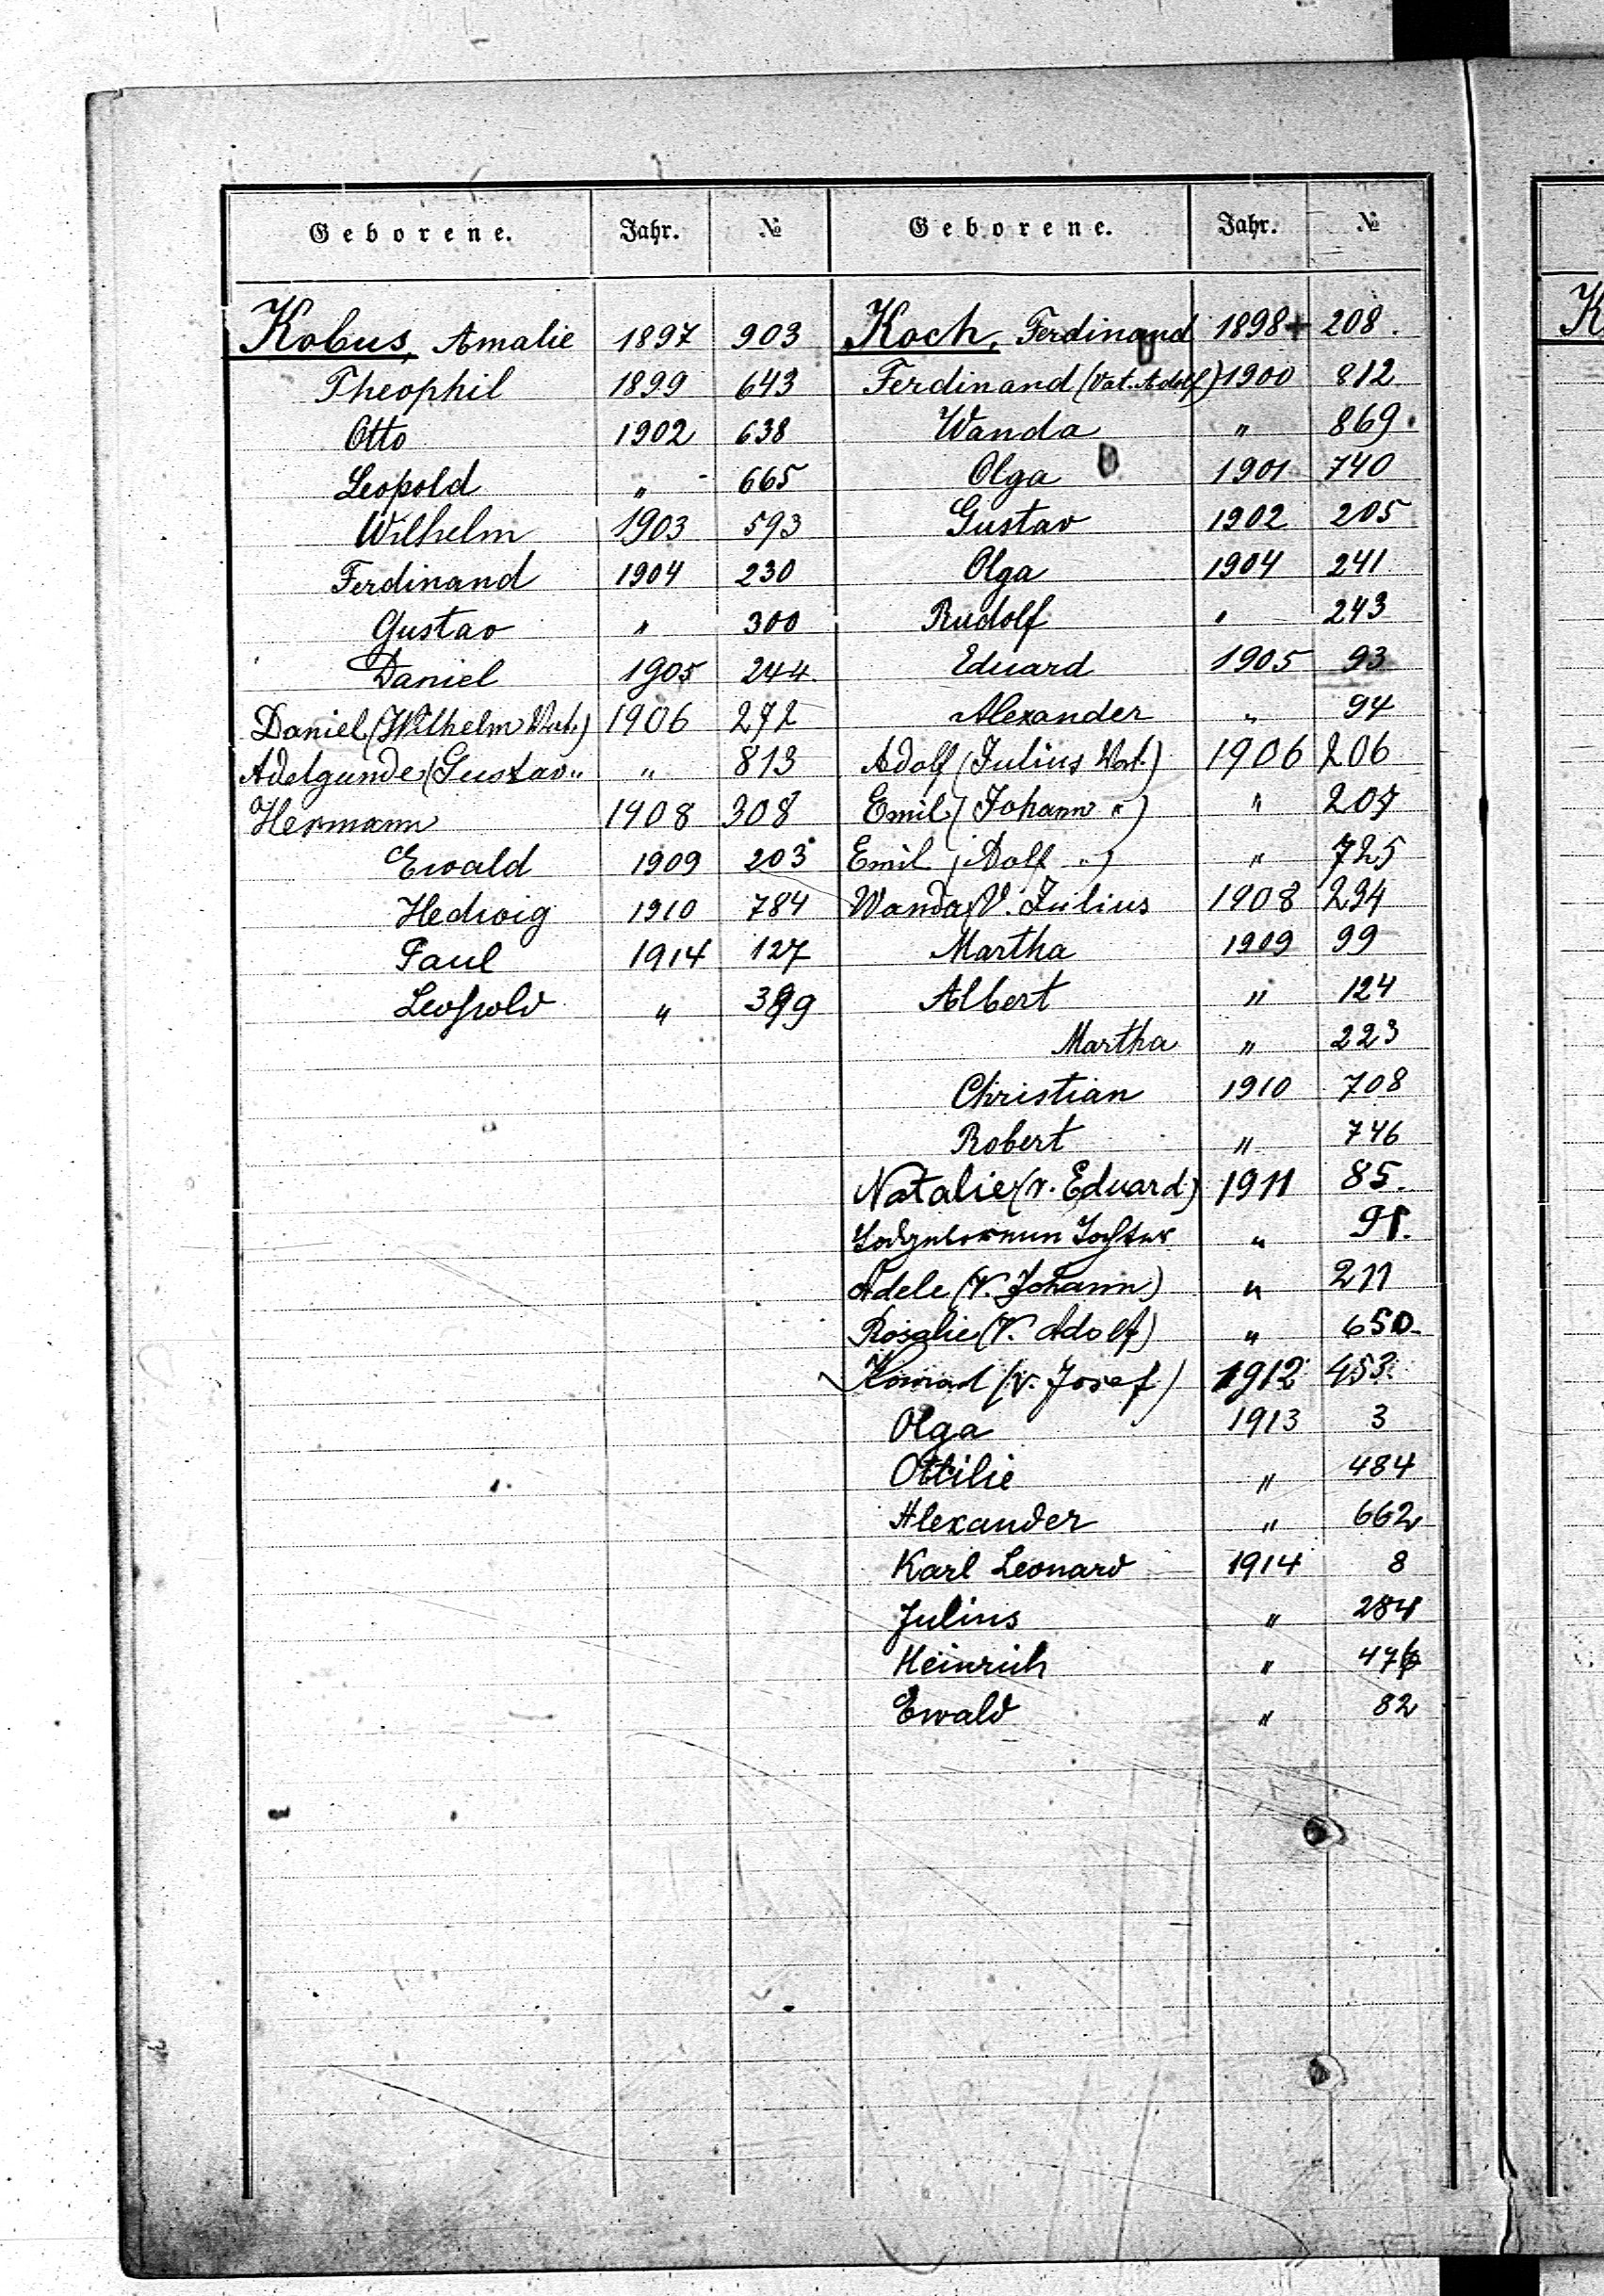 Geborene. Jahr. №
Kobus, Amalie 1897 903
Theophil 1899 643
Otto 1902 638
Leopold " 665
Wilhelm 1903 593
Ferdinand 1904 230
Gustav " 300
Daniel 1905 244.
Daniel (Wilhelm Vat.) 1906 272
Adelgunde (Gustav " " 813
Hermann 1908 308
Ewald 1909 203
Hedwig 1910 784
Paul 1914 127
Leopold " 399
Geborene. Jahr. №
Koch, Ferdinand 1898 + 208.
Ferdinand (Vat. Adolf) 1900 812
Wanda " 869.
Olga 1901 740
Gustav 1902 205
Olga 1904 241
Rudolf " 243
Eduard 1905 93
Alexander " 94
Adolf (Julius Vat.) 1906 206
Emil (Johann ") " 207
Emil (Adolf ") " 725
Wanda (V. Julius 1908 294
Martha 1909 99
Albert " 124
Martha " 223
Christian 1910 708
Robert " 746
Natalie (v. Eduard) 1911 85.
Todgeborenen Tochter "
Adele (V. Johann) " 211
Rosalie (V. Adolf) " 650.
Konrad (V. Josef) 1912 453.
Olga 1913 3
Ottilie " 484
Alexander " 662
Karl Leonard 1914 8
Julius " 284
Heinrich "
Ewald " 82
K